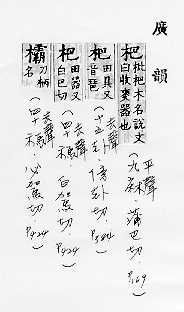 廣韻
杷 枇杷木名說文曰收麥器也
(平聲 九麻.蒲巴切.P.169)
杷 田具又音琶
(去聲 十五卦.傍卦切.
杷 田器又白巴切
(去聲 四十禡.白駕切.P.424)
欛 刀柄名
(去聲 四十禡.必駕切.P.424)